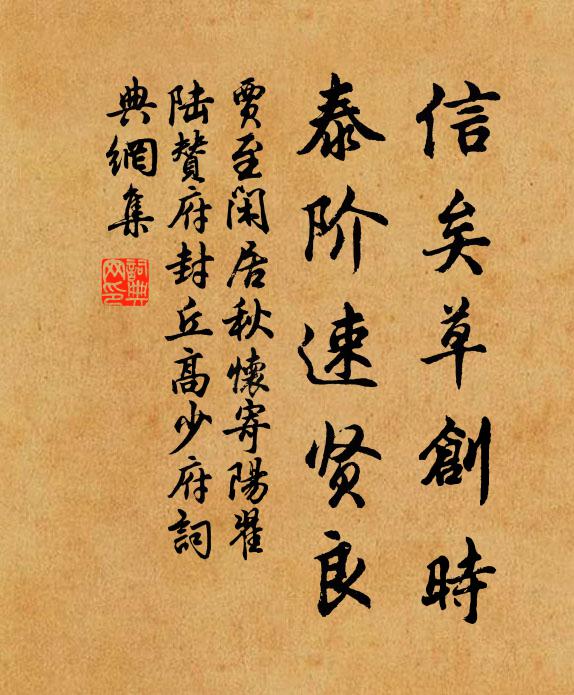 信矣草創時
泰阶速贤良
賈至閑居秋懷寄陽翟
陆贊府封丘高少府詞
典網集
詞典網印